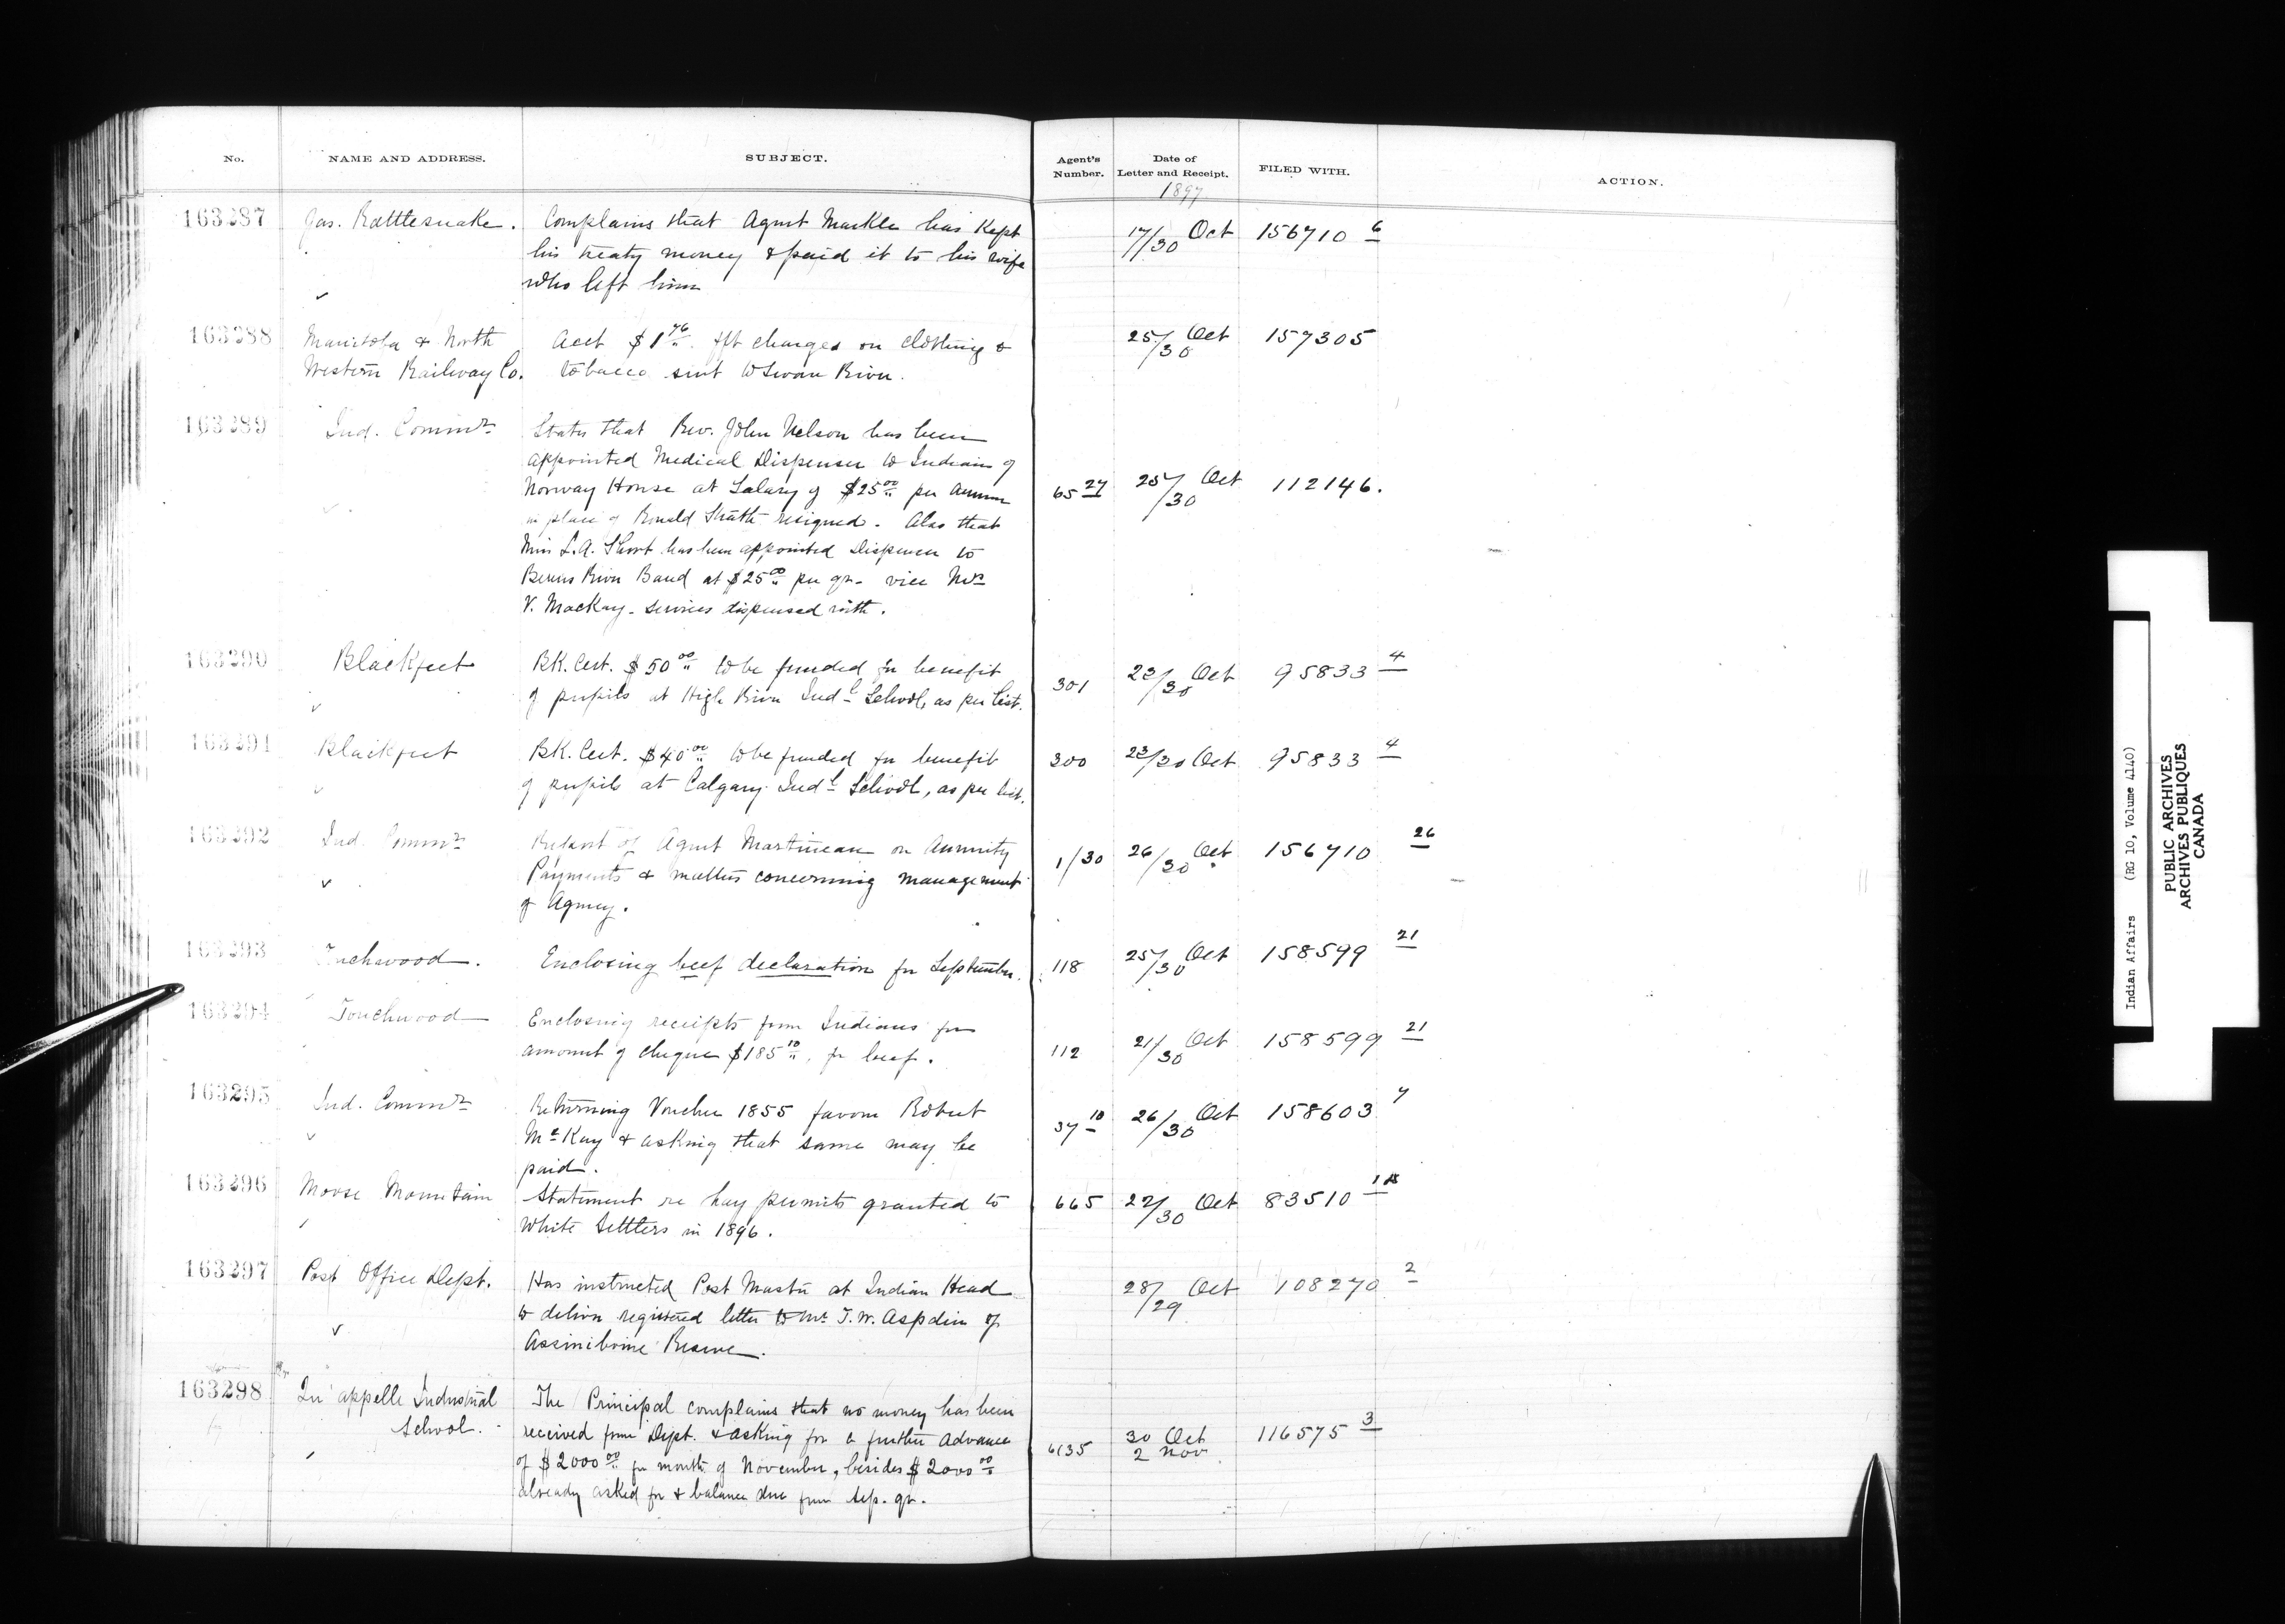 No. NAME AND ADDRESS. SUBJECT. Agent's Number. Date of Letter and Receipt. FILED WITH. ACTION.
1897
163287 Jas. Rattlesnake. Complains that Agent Markle has kept 17/30 Oct 156710 6
his treaty money & paid it to his wife
who left him
163288 Manitoba & North Acct $1 76 frt charges on clothing & 25/30 Oct 157305
Western Railway Co. tobacco sent to Swan River.
163289 Ind. Commr States that Rev. John Nelson has been
appointed Medical Dispenser to Indians of
Norway House at Salary of $25 00 per annum 65 27 25/30 Oct 112146.
in place of Ronald resigned. Also that
Miss L.A. Short has been appointed Dispenser to
Berens River Band at $25 00 per qr. vice Mrs
V. MacKay - services dispensed with.
163290 Blackfeet BK. Cert. $50 00 to be funded for benefit 301 23/30 Oct 95833 4
of pupils at High River Indl School, as per list.
163291 Blackfeet BK. Cert. $40 00 to be funded for benefit 300 23/30 Oct 95833 4
of pupils at Calgary Indl School, as per list.
163292 Ind. Commr Report of Agent Martineau on Annuity 1/30 26/30 Oct 156710 26
Payments & matters concerning management
of Agency.
163293 Touchwood. Enclosing beef declaration for September. 118 25/30 Oct 158599 21
163294 Touchwood Enclosing receipts from Indians for
amount of cheque $185 10, for beef. 112 21/30 Oct 158599 21
163295 Ind. Commr Returning Voucher 1855 favour Robert 37 10 26/30 Oct 158603 7
McKay & asking that same may be
paid.
163296 Moose Mountain Statement re hay permits granted to 665 22/30 Oct 83510
White Settlers in 1896.
163297 Post Office Dept. Has instructed Post Master at Indian Head 28/29 Oct 108270 2
to deliver registered letter to Mr T.W. Aspdin of
Assiniboine Reserve.
163298 Qu'appelle Industrial The Principal complains that no money has been
School. received from Dept. & asking for a further advance 6135 30 Oct 2 Nov 116575 3
of $2000 00 for month of November, besides $2000 00
already asked for & balance due from Sep. qr.
Indian Affairs (RG 10, Volume 4140)
PUBLIC ARCHIVES
ARCHIVES PUBLIQUES
CANADA